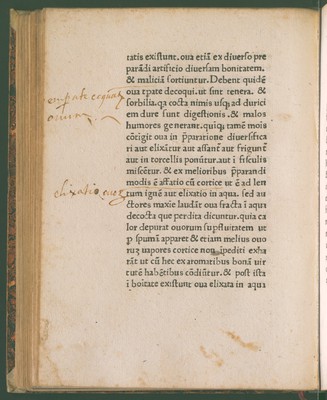 tatis existunt. oua etiã ex diuerso pre
parãdi artificio diuersam bonitatem.
& maliciã sortiuntur. Debent quidẽ
oua tẽpate decoqui. ut sint tenera. &
sorbilia. qa cocta nimis usqʒ ad durici
em dure sunt digestionis. & malos
humores generant. quiqʒ tamẽ mois
cõtigit oua in pparatione diuersifica
ri aut elixãtur aut assant̃ aut frigunt̃
aut in torcellis ponũtur. aut ĩ fisculis
miscẽtur. & ex melioribus pparandi
modis ẽ assatio cũ cortice ut ẽ ad len
tum ignẽ aut elixatio in aqua. sed au
ctores maxie laudãt oua fracta ĩ aqua
decocta que perdita dicuntur. quia ca
lor depurat ouorum supfluitatem ut
p spumã apparet & etiam melius ouo
ruʒ uapores cortice non ĩpediti exha
rãt ut cũ hec ex aromatibus bonã uir
tutẽ habẽtibus cõdiũtur. & post ista
ĩ boitate existunt oua elixata in aqua
elixatio